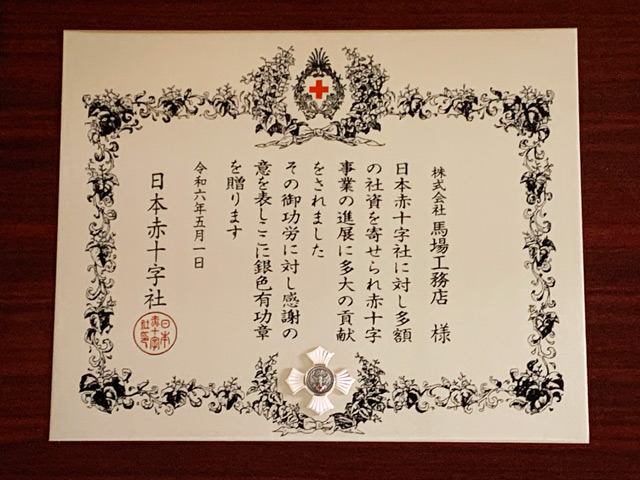 株式会社 馬場工務店 様
日本赤十字社に対し多額
の社資を寄せられ赤十字
事業の進展に多大の貢献
をされました
その御功労に対し感謝の
意を表しここに銀色有功章
を贈ります
令和六年五月一日
日本赤十字社
日本
赤十字
社印